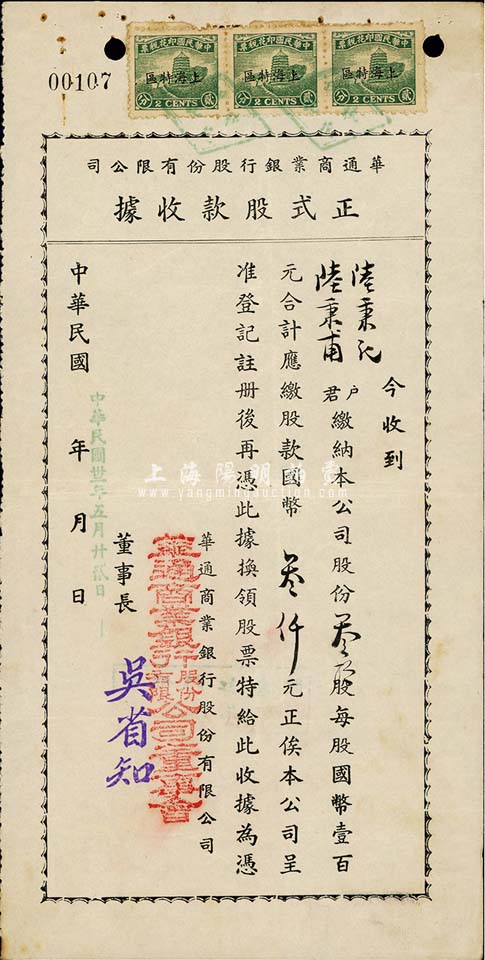 中華民國印花稅票
上海特區
貳 2 CENTS 分
中華民國印花稅票
上海特區
貳 2 CENTS 分
中華民國印花稅票
上海特區
貳 2 CENTS 分
00107
華通商業銀行股份有限公司
正式股款收據
今收到
陸秉記戶
陸秉甫君
繳納本公司股份叁拾股每股國幣壹百
元合計應繳股款國幣叁仟元正俟本公司呈
准登記註册後再憑此據換領股票特給此收據為憑
華通商業銀行股份有限公司
華通商業銀行股份有限公司董事會
董事長
吳省知
中華民國卅一年五月廿貳日
中華民國 年 月 日
上海陽明拍賣
www.yangmingauction.com